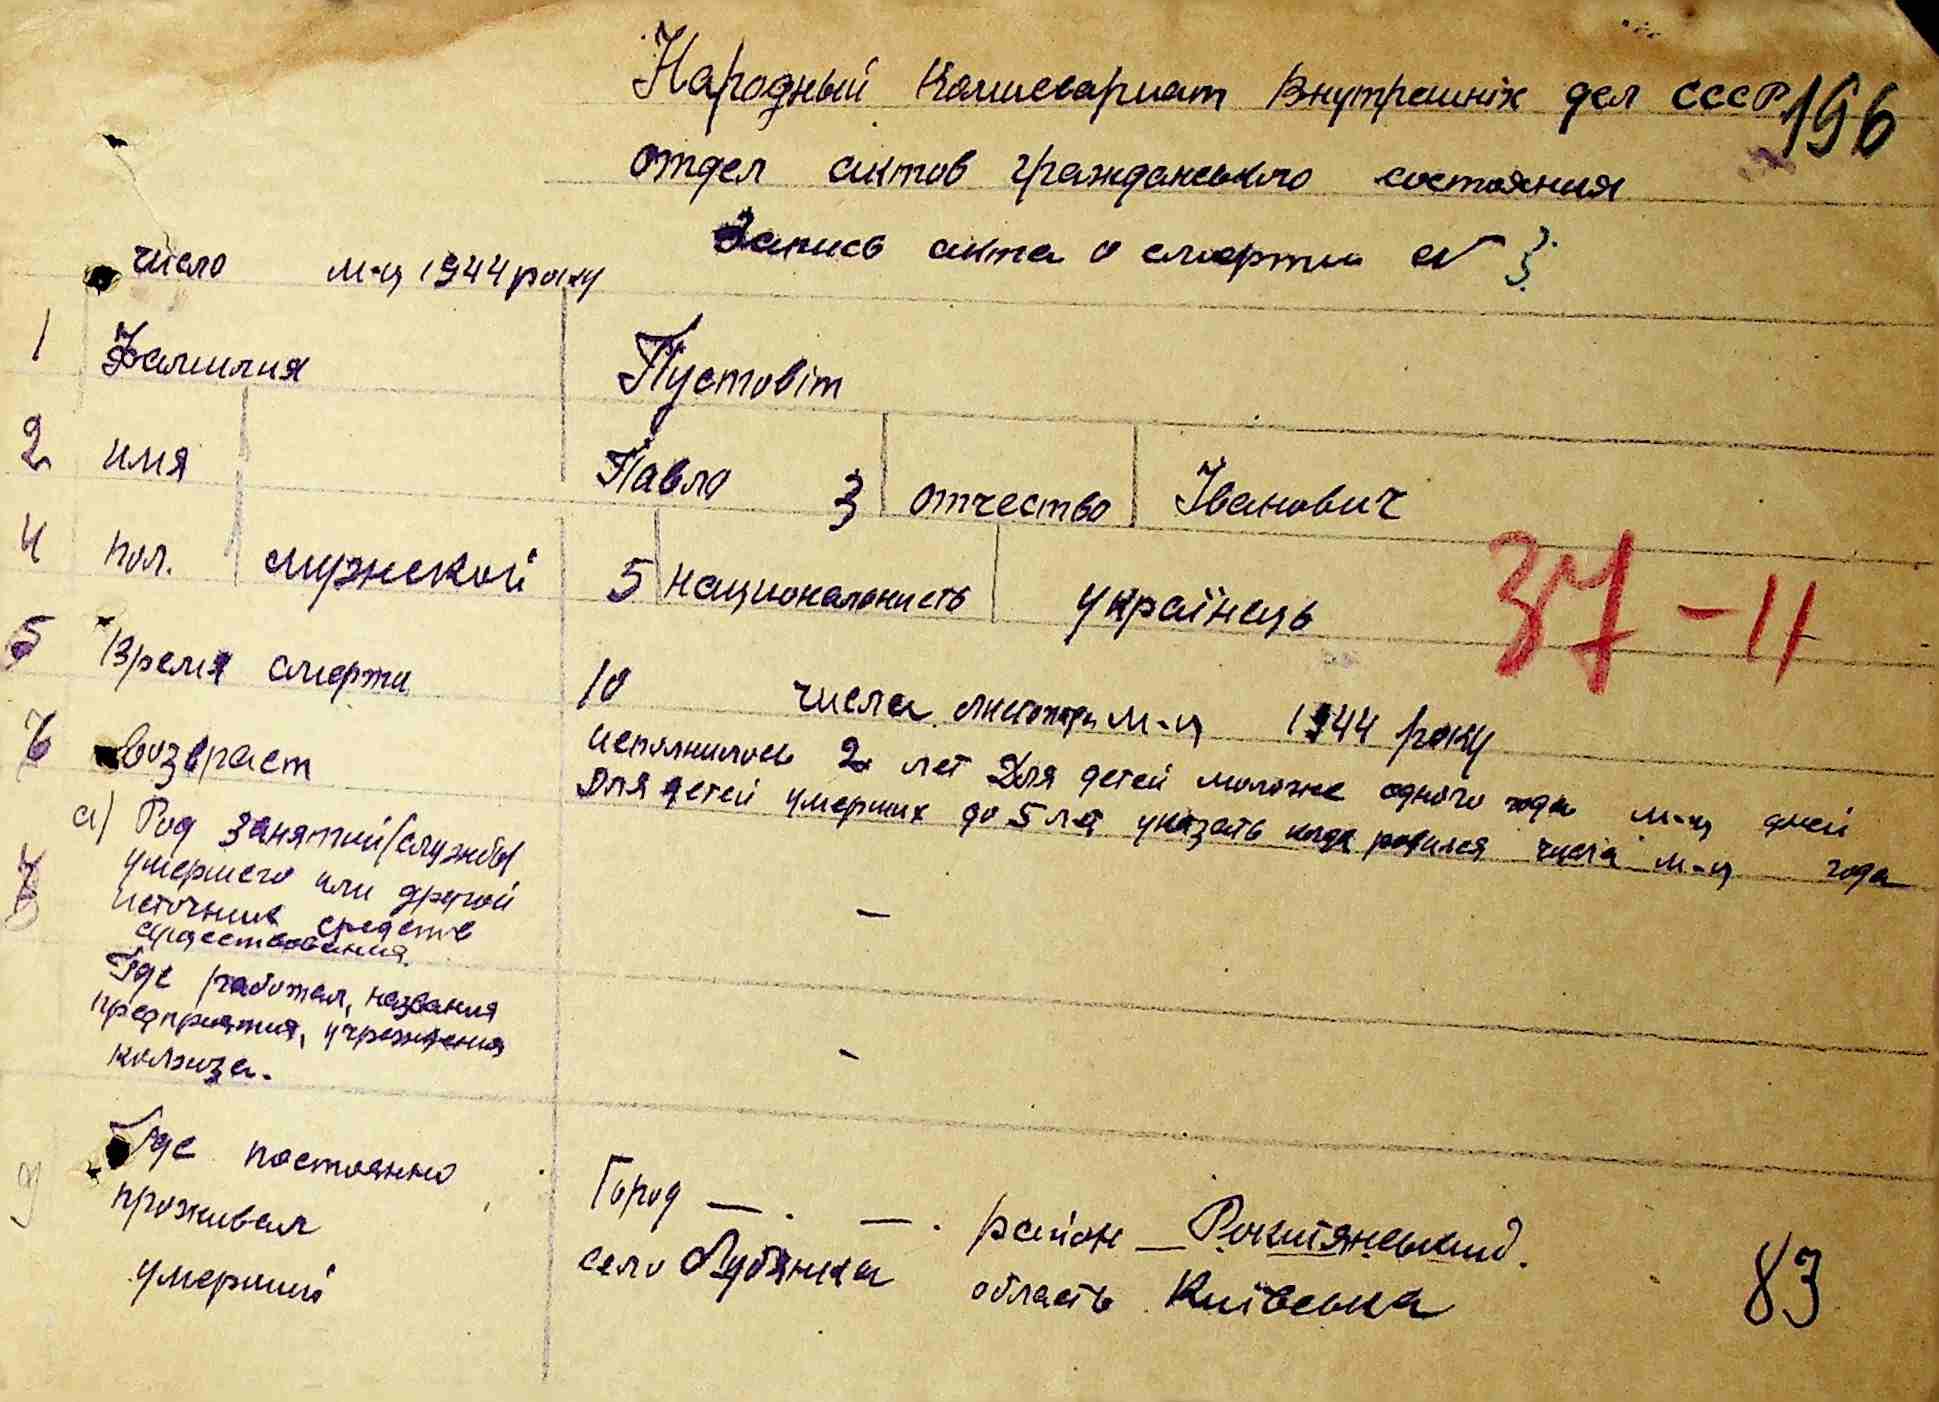 Народный Комиссариат Внутрешніх дел СССР 196
отдел актов гражданського состояния
Запись акта о смерти N 3
число м-ц 1944 року
1 Фамилия Пустовіт
2 имя Павло 3 отчество Іванович
4 пол. мужской 5 национальность українець
37-11
5 Время смерти 10 числа листопад м-ц 1944 року
6 возвраст исполнилось 2 лет Для детей моложе одного года м-ц дней
Для детей умерших до 5 лет указать когда родился числа м-ц года
а) Род занятий/службы
умершего или другой
источник средств
существования. –
Где работал, названия
предприятия, учреждения
колхоза. –
9 Где постоянно
проживал
умерший
Город — . — . район Рокитянський.
село Лубянка область Київська
83